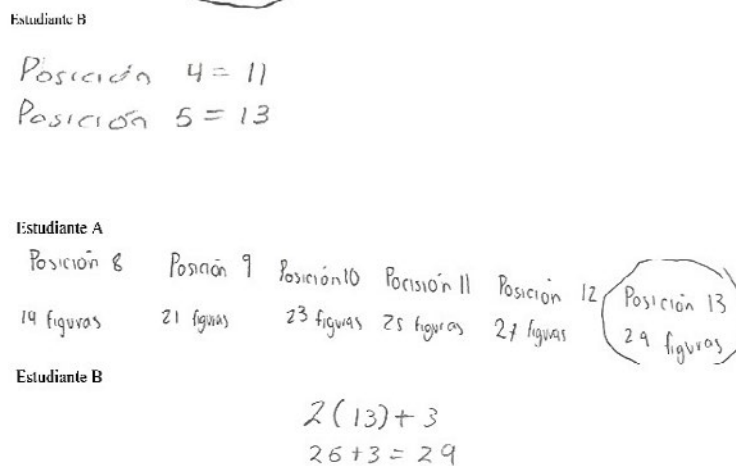 Estudiante B
Posición 4 = 11
Posición 5 = 13
Estudiante A
Posición 8 Posición 9 Posición 10 Pocisión 11 Posición 12 Posición 13
19 figuras 21 figuras 23 figuras 25 figuras 27 figuras 29 figuras
Estudiante B
2(13)+3
26+3=29